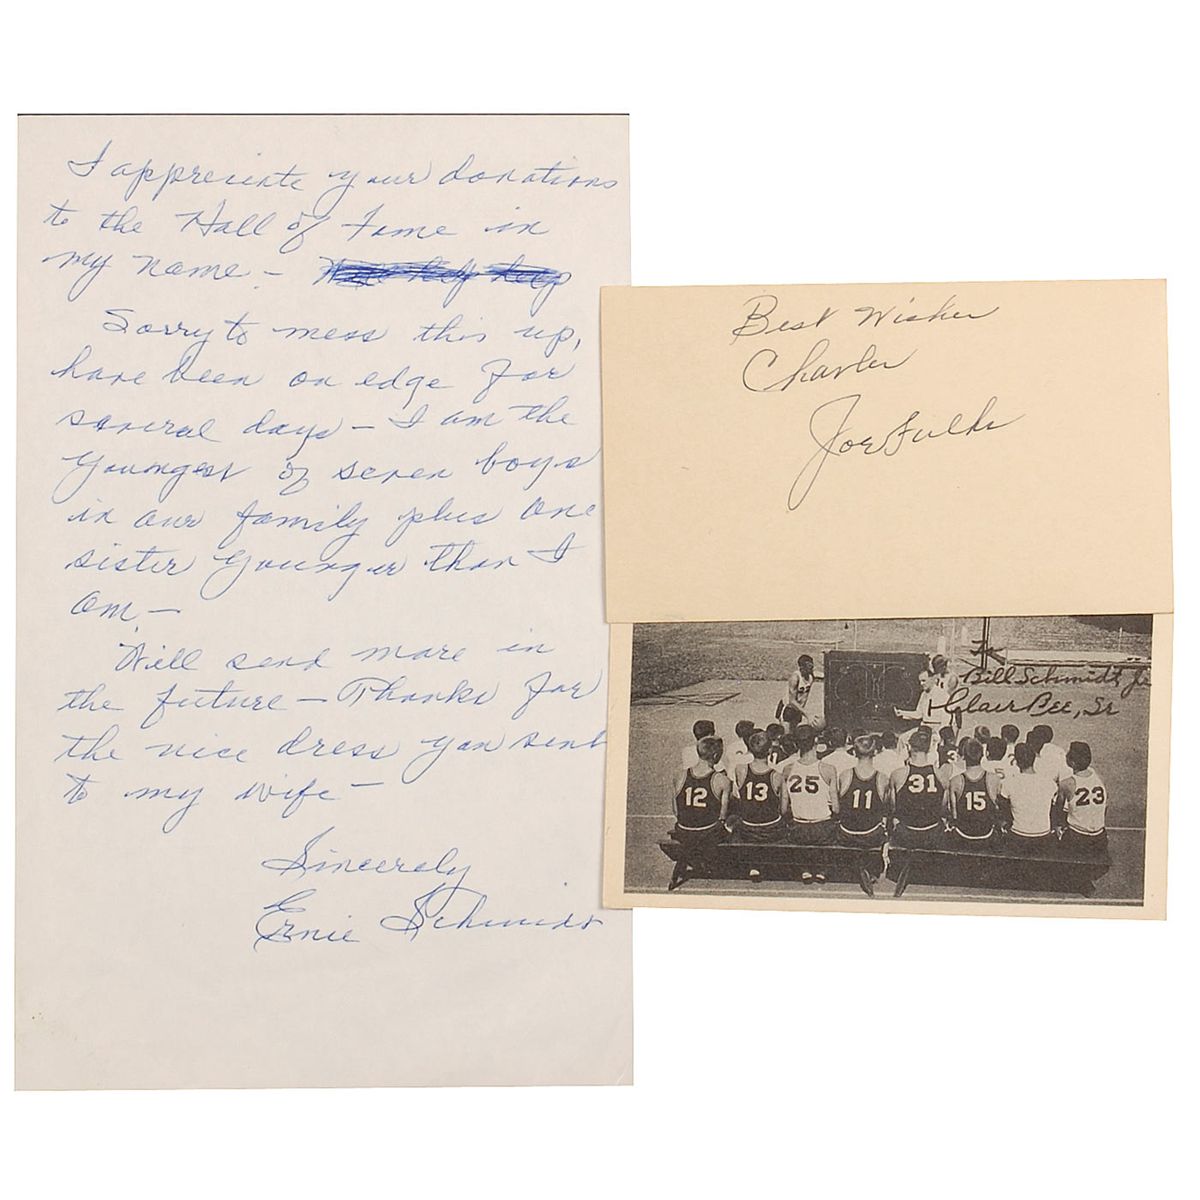 I appreciate your donations
to the Hall of Fame in
my name –
Sorry to mess this up,
have been on edge for
several days – I am the
youngest of seven boys
in our family plus one
sister younger than I
am –
Will send more in
the future – Thanks for
the nice dress you sent
to my wife –
Sincerely
Ernie Schmidt
Best Wishes
Charles
Joe Fulks
To
Bill Schmidt, Jr
Clair Bee, Sr
12 13 25 11 31 15 23